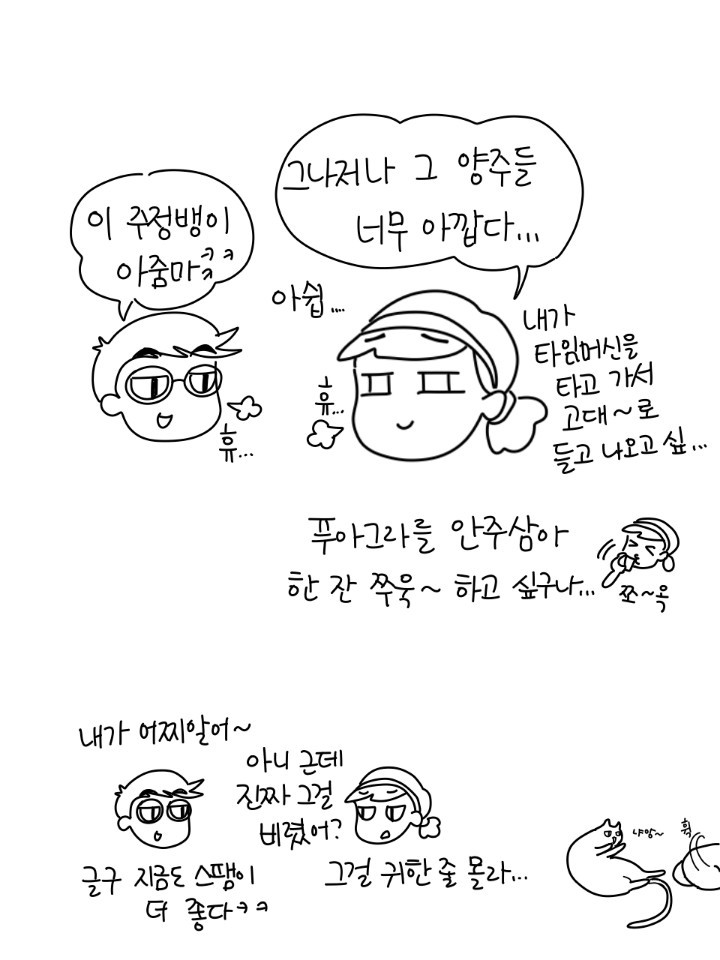 이 주정뱅이
아줌마ㅋㅋ
그나저나 그 양주들
너무 아깝다...
아쉽....
내가
타임머신을
타고 가서
고대~로
들고 나오고 싶...
휴...
휴...
푸아그라를 안주삼아
한 잔 쭈욱~ 하고 싶구나...
쪼~옥
내가 어찌알어~
아니 근데
진짜 그걸
버렸어?
글구 지금도 스팸이
더 좋다ㅋㅋ
그걸 귀한 줄 몰라...
냐앙~
휙